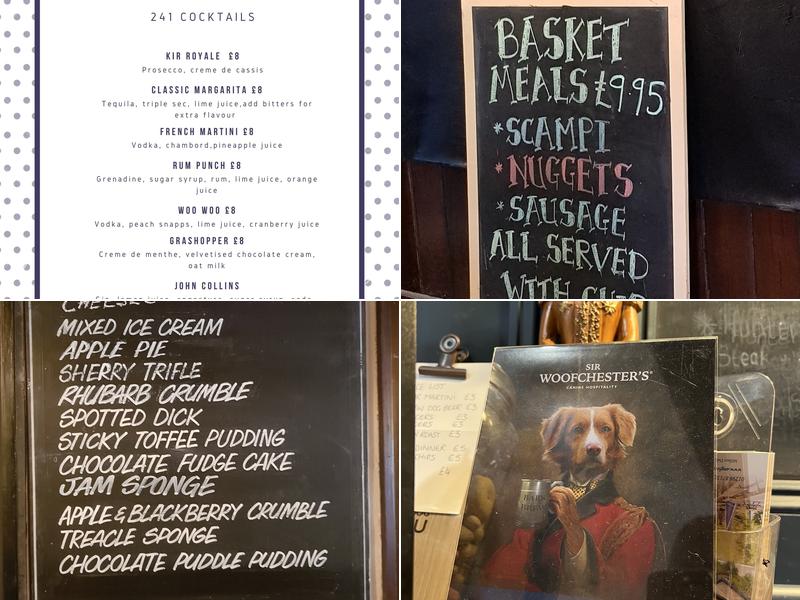 241 COCKTAILS
KIR ROYALE £8
Prosecco, creme de cassis
CLASSIC MARGARITA £8
Tequila, triple sec, lime juice,add bitters for
extra flavour
FRENCH MARTINI £8
Vodka, chambord,pineapple juice
RUM PUNCH £8
Grenadine, sugar syrup, rum, lime juice, orange
juice
WOO WOO £8
Vodka, peach snapps, lime juice, cranberry juice
GRASHOPPER £8
Creme de menthe, velvetised chocolate cream,
oat milk
JOHN COLLINS
BASKET
MEALS £9.95
*SCAMPI
*NUGGETS
*SAUSAGE
ALL SERVED
WITH
MIXED ICE CREAM
APPLE PIE
SHERRY TRIFLE
RHUBARB CRUMBLE
SPOTTED DICK
STICKY TOFFEE PUDDING
CHOCOLATE FUDGE CAKE
JAM SPONGE
APPLE & BLACKBERRY CRUMBLE
TREACLE SPONGE
CHOCOLATE PUDDLE PUDDING
SIR
WOOFCHESTER'S
CANINE HOSPITALITY
LIST
MARTINI £5
DOG BEER £3
£3
£3
ROAST £3
DINNER £5
CHIPS £5
£4
Hunter
Steak